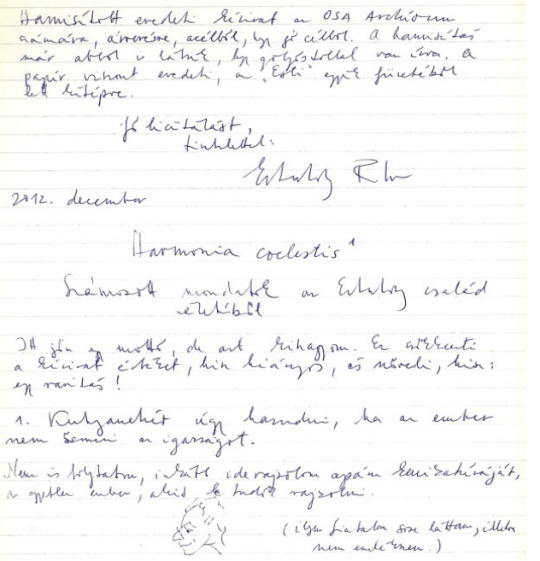 Hamisított eredeti kézirat az OSA Archívum
számára, árverésre, acélból, hogy jó célból. A hamisítás
már abból is látszik, hogy golyóstollal van írva. A
papír viszont eredeti, az "Esti" egyik füzetéből
lett kitépve.
Jó licitálást,
tisztelettel:
Esterházy Péter
2012. december
Harmonia coelestis¹
Számozott mondatok az Esterházy család
életéből
Itt jön egy mottó, de azt kihagyom. Ez csökkenti
a kézirat értékét, hisz hiányos, és növeli, hisz:
egy ritkaság!
1. Kutyanehéz úgy hazudni, ha az ember
nem ismeri az igazságot.
Nem is folytatom, inkább iderajzolom apám karikatúráját,
az egyetlen ember, akit le tudok rajzolni.
(ilyen fiatalon sose láttam, illetve
nem emlékszem.)